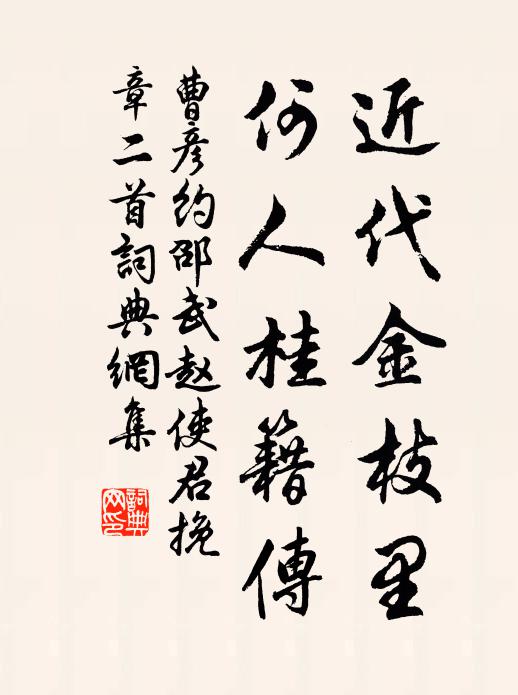 近代金枝里
何人桂籍傳
曹彥約邵武趙使君挽
章二首詞典網集
詞典网印